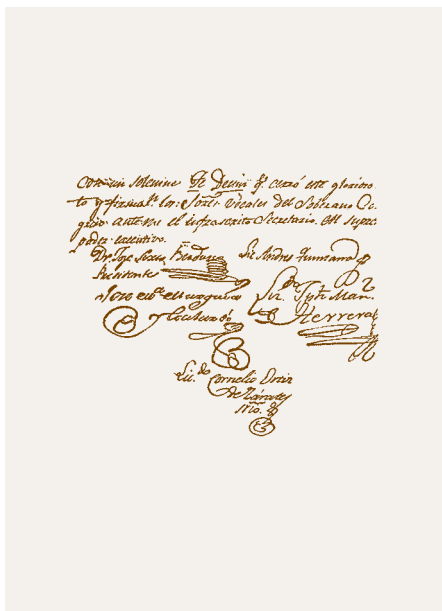 con un solemne Te Deum q.e cerró este glorioso
to y firmal.n los Sores Vocales del Soberano Co.
greso ante mi el infrascrito Secretario. del Supre
poder executivo.
Dr. José Sixto Berduzco Lic. Andres
Presidente
Lic.do José Man.
y Herrera
Lic.do Cornelio Ortiz
de Zárate
Srio.